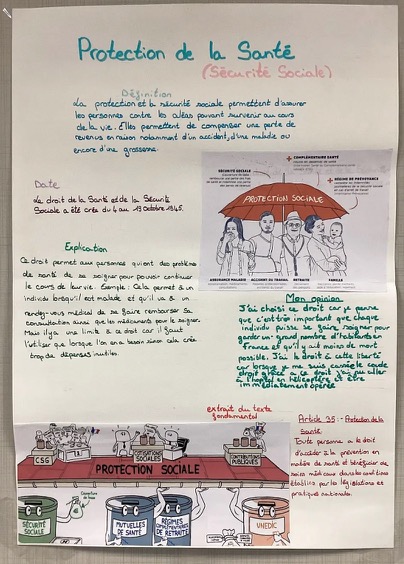 Protection de la Santé
(Sécurité Sociale)
Définition
La protection et la sécurité sociale permettent d'assurer
les personnes contre les aléas pouvant survenir au cours
de la vie. Elles permettent de compenser une perte de
revenus en raison notamment d'un accident, d'une maladie ou
encore d'une grossesse.
Date
Le droit de la Santé et de la Sécurité
Sociale a été créé du 4 au 19 octobre 1945.
+ COMPLÉMENTAIRE SANTÉ
SÉCURITÉ SOCIALE
+ RÉGIME DE PRÉVOYANCE
PROTECTION SOCIALE
ASSURANCE MALADIE
ACCIDENT DU TRAVAIL
RETRAITE
FAMILLE
Explication
Ce droit permet aux personnes qui ont des problèmes
de santé de se soigner pour pouvoir continuer
le cours de leur vie. Exemple : Cela permet à un
individu lorsqu'il est malade et qu'il va à un
rendez-vous médical de se faire rembourser sa
consultation ainsi que les médicaments pour le soigner.
Mais il y a une limite à ce droit car il faut
l'utiliser que lorsque l'on en a besoin sinon cela crée
trop de dépenses inutiles.
Mon opinion
J'ai choisi ce droit car je pense
que c'est très important que chaque
individu puisse se faire soigner pour
garder un grand nombre d'habitants en
france et qu'il y ait moins de mort
possible. J'ai le droit à cette liberté
car lorsque je me suis cassé le coude
droit grâce à ce droit j'ai pu aller
à l'hôpital en hélicoptère et être
immédiatement opérée
extrait du texte
fondamental
Article 35 : Protection de la
Santé
Toute personne a le droit
d'accéder à la prévention en
matière de santé et bénéficier de
soins médicaux dans les conditions
établies par les législations et
pratiques nationales.
CSG
COTISATIONS
SOCIALES
CONTRIBUTIONS
PUBLIQUES
PROTECTION SOCIALE
SÉCURITÉ
SOCIALE
MUTUELLES
DE SANTÉ
RÉGIMES
COMPLÉMENTAIRES
DE RETRAITE
UNEDIC